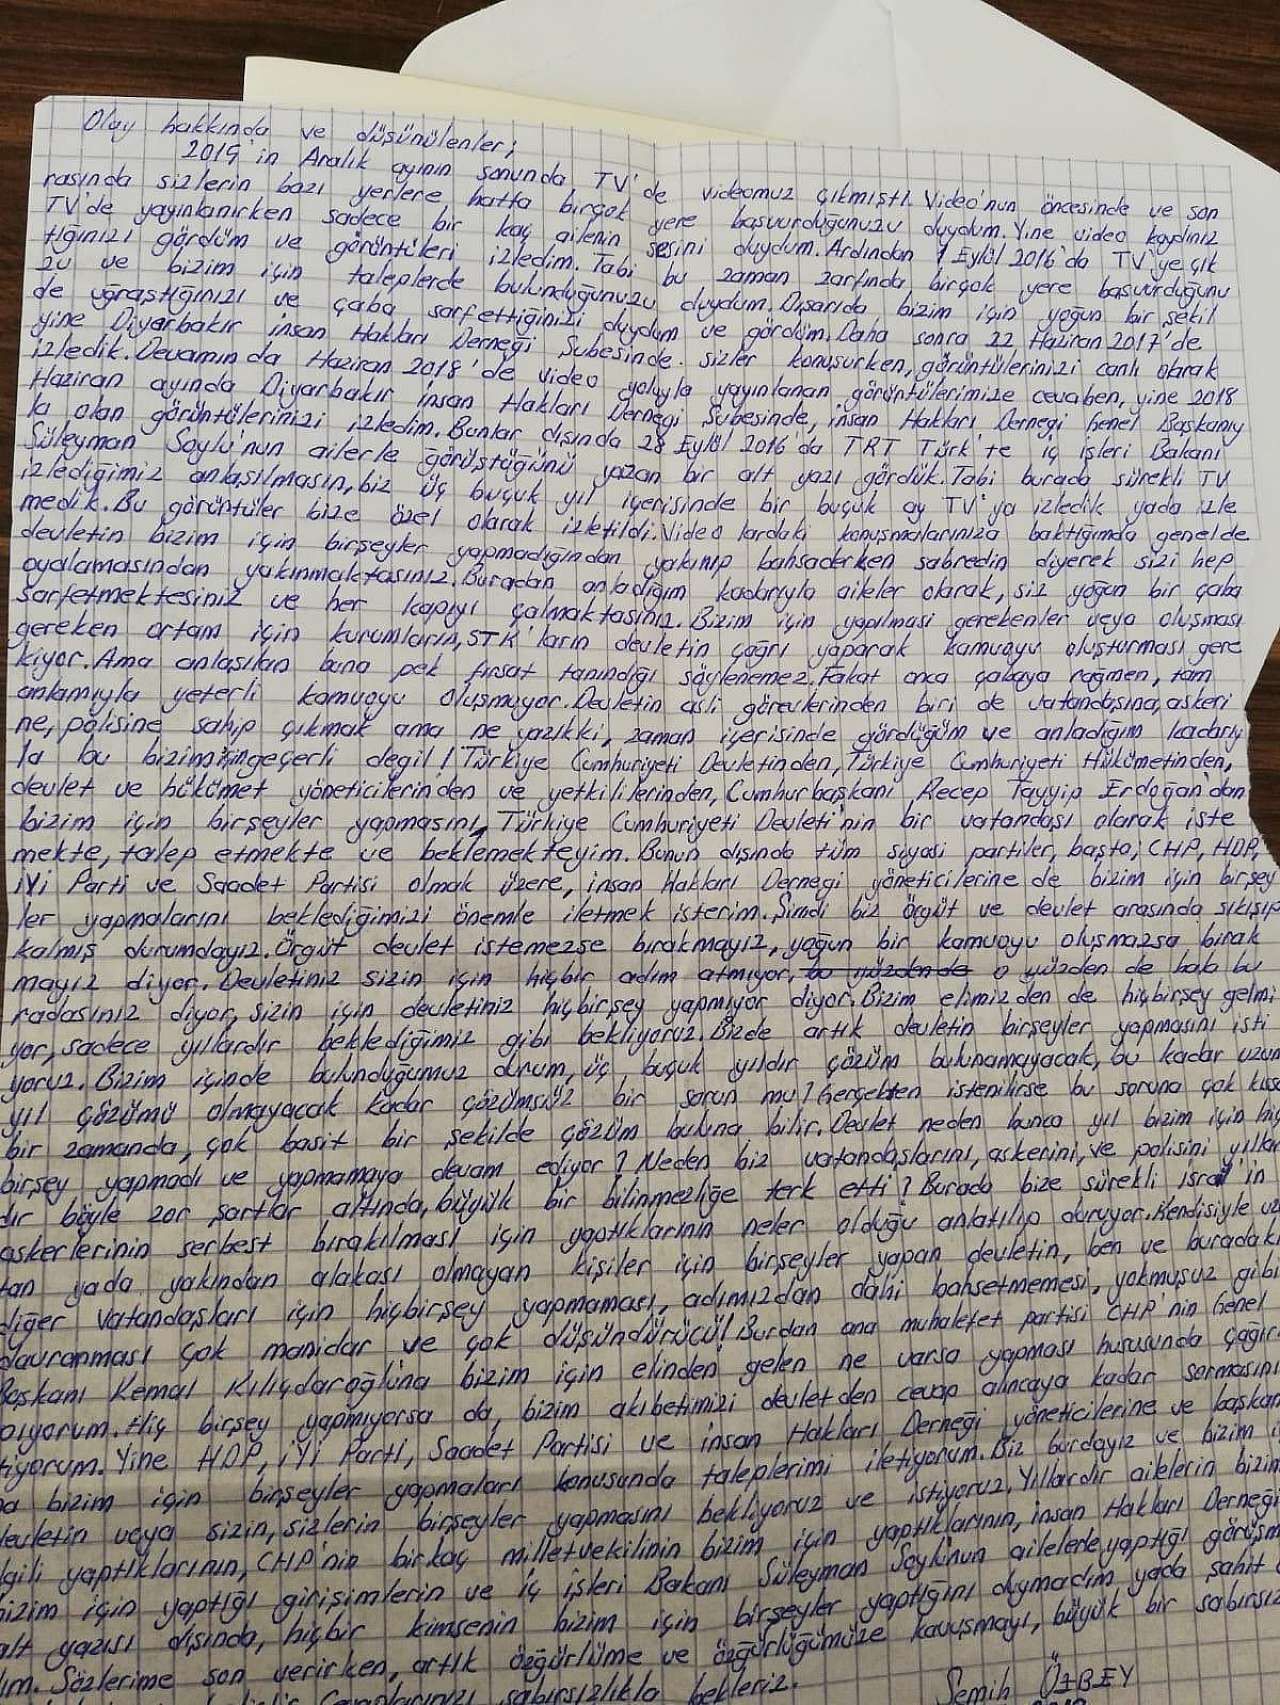 Olay hakkında ve düşünülenler;
2019'in Aralık ayının sonunda TV'de videomuz çıkmıştı. Video'nun öncesinde ve son
rasında sizlerin bazı yerlere, hatta birçok yere başvurduğunuzu duydum. Yine video kaydınız
TV'de yayınlanırken sadece bir kaç ailenin sesini duydum. Ardından 1 Eylül 2016'da TV'ye çık
tığınızı gördüm ve görüntüleri izledim. Tabi bu zaman zarfında, birçok yere başvurduğunu
zu ve bizim için taleplerde bulunduğunuzu duydum. Dışarıda bizim için yoğun bir şekil
de uğraştığınızı ve çaba sarfettiğinizi duydum ve gördüm. Daha sonra 22 Haziran 2017'de
yine Diyarbakır İnsan Hakları Derneği Şubesinde sizler konuşurken, görüntülerinizi canlı olarak
izledik. Devamında Haziran 2018'de video yoluyla yayınlanan görüntülerimize cevaben, yine 2018
Haziran ayında Diyarbakır İnsan Hakları Derneği Şubesinde, İnsan Hakları Derneği Genel Başkanıy
la olan görüntülerinizi izledim. Bunlar dışında 28 Eylül 2016'da TRT Türk'te iç işleri Bakanı
Süleyman Soylu'nun ailerle görüştüğünü yazan bir alt yazı gördük. Tabi burada sürekli TV
izlediğimiz anlaşılmasın, biz üç buçuk yıl içerisinde bir buçuk ay TV'ya izledik yada izle
medik. Bu görüntüler bize özel olarak izletildi. Video lardaki konuşmalarınıza baktığımda genelde
devletin bizim için birşeyler yapmadığından yakınıp bahsederken sabredin diyerek sizi hep
oyalamasından yakınmaktasınız. Buradan anladığım kadarıyla aileler olarak, siz yoğun bir çaba
sarfetmektesiniz ve her kapıyı çalmaktasınız. Bizim için yapılması gerekenler veya oluşması
gereken ortam için kurumların, STK'ların devletin çağrı yaparak kamuoyu oluşturması gere
kiyor. Ama anlaşılan buna pek fırsat tanındığı söylenemez. Fakat onca çabaya rağmen, tam
anlamıyla yeterli kamuoyu oluşmuyor. Devletin asli görevlerinden biri de vatandaşına, askeri
ne, polisine sahip çıkmak ama ne yazıkki, zaman içerisinde gördüğüm ve anladığım kadarıy
la bu bizim için geçerli degil! Türkiye Cumhuriyeti Devletinden, Türkiye Cumhuriyeti Hükümetinden,
devlet ve hükümet yöneticilerinden ve yetkililerinden, Cumhurbaşkanı Recep Tayyip Erdoğan'dan
bizim için birşeyler yapmasını, Türkiye Cumhuriyeti Devleti'nin bir vatandaşı olarak iste
mekte, talep etmekte ve beklemekteyim. Bunun dışında tüm siyasi partiler, başta; CHP, HDP,
İYİ Parti ve Saadet Partisi olmak üzere, İnsan Hakları Derneği yöneticilerine de bizim için birşey
ler yapmalarını beklediğimizi önemle iletmek isterim. Şimdi biz örgüt ve devlet arasında sıkışıp
kalmış durumdayız. Örgüt devlet istemezse bırakmayız, yoğun bir kamuoyu oluşmazsa bırak
mayız diyor. Devletiniz sizin için hiçbir adım atmıyor, bu yüzden de o yüzden de hala bu
radasınız diyor, sizin için devletiniz hiçbirşey yapmıyor diyor. Bizim elimizden de hiçbirşey gelmi
yor, sadece yıllardır beklediğimiz gibi bekliyoruz. Bizde artık devletin birşeyler yapmasını isti
yoruz. Bizim içinde bulunduğumuz durum, üç buçuk yıldır çözüm bulunamayacak, bu kadar uzun
yıl çözümü olmayacak kadar çözümsüz bir sorun mu? Gerçekten istenilirse bu soruna çok kısa
bir zamanda, çok basit bir şekilde çözüm buluna bilir. Devlet neden bunca yıl bizim için hiç
birşey yapmadı ve yapmamaya devam ediyor? Neden biz vatandaşlarını, askerini, ve polisini yıllar
dır böyle zor şartlar altında, büyük bir bilinmezliğe terk etti? Burada bize sürekli israil'in
askerlerinin serbest bırakılması için yaptıklarının neler olduğu anlatılıp duruyor. Kendisiyle uzak
tan yada yakından alakası olmayan kişiler için birşeyler yapan devletin, ben ve buradaki
diğer vatandaşları için hiçbirşey yapmaması, adımızdan dahi bahsetmemesi, yokmuşuz gibi
davranması çok manidar ve çok düşündürücü! Burdan ana muhalefet partisi CHP'nin Genel
Başkanı Kemal Kılıçdaroğluna bizim için elinden gelen ne varsa yapması hususunda çağrı
pıyorum. Hiç birşey yapmıyorsa da, bizim akıbetimizi devletden cevap alıncaya kadar sormasını
tiyorum. Yine HDP, İYİ Parti, Saadet Partisi ve İnsan Hakları Derneği yöneticilerine ve başkan
na bizim için birşeyler yapmaları konusunda taleplerimi iletiyorum. Biz burdayız ve bizim
devletin veya sizin, sizlerin birşeyler yapmasını bekliyoruz ve istiyoruz. Yıllardır ailelerin bizim
lgili yaptıklarının, CHP'nin birkaç milletvekilinin bizim için yaptıklarının, İnsan Hakları Derneği
bizim için yaptığı girişimlerin ve İç işleri Bakanı Süleyman Soylu'nun ailelerle yaptığı görüşm
alt yazısı dışında, hiçbir kimsenin bizim için birşeyler yaptığını duymadım yada şahit
lım. Sözlerime son verirken, artık özgürlüme ve özgürlüğümüze kavuşmayı, büyük bir sabırsız
sabırsızlıkla bekleriz.
Semih ÖZBEY